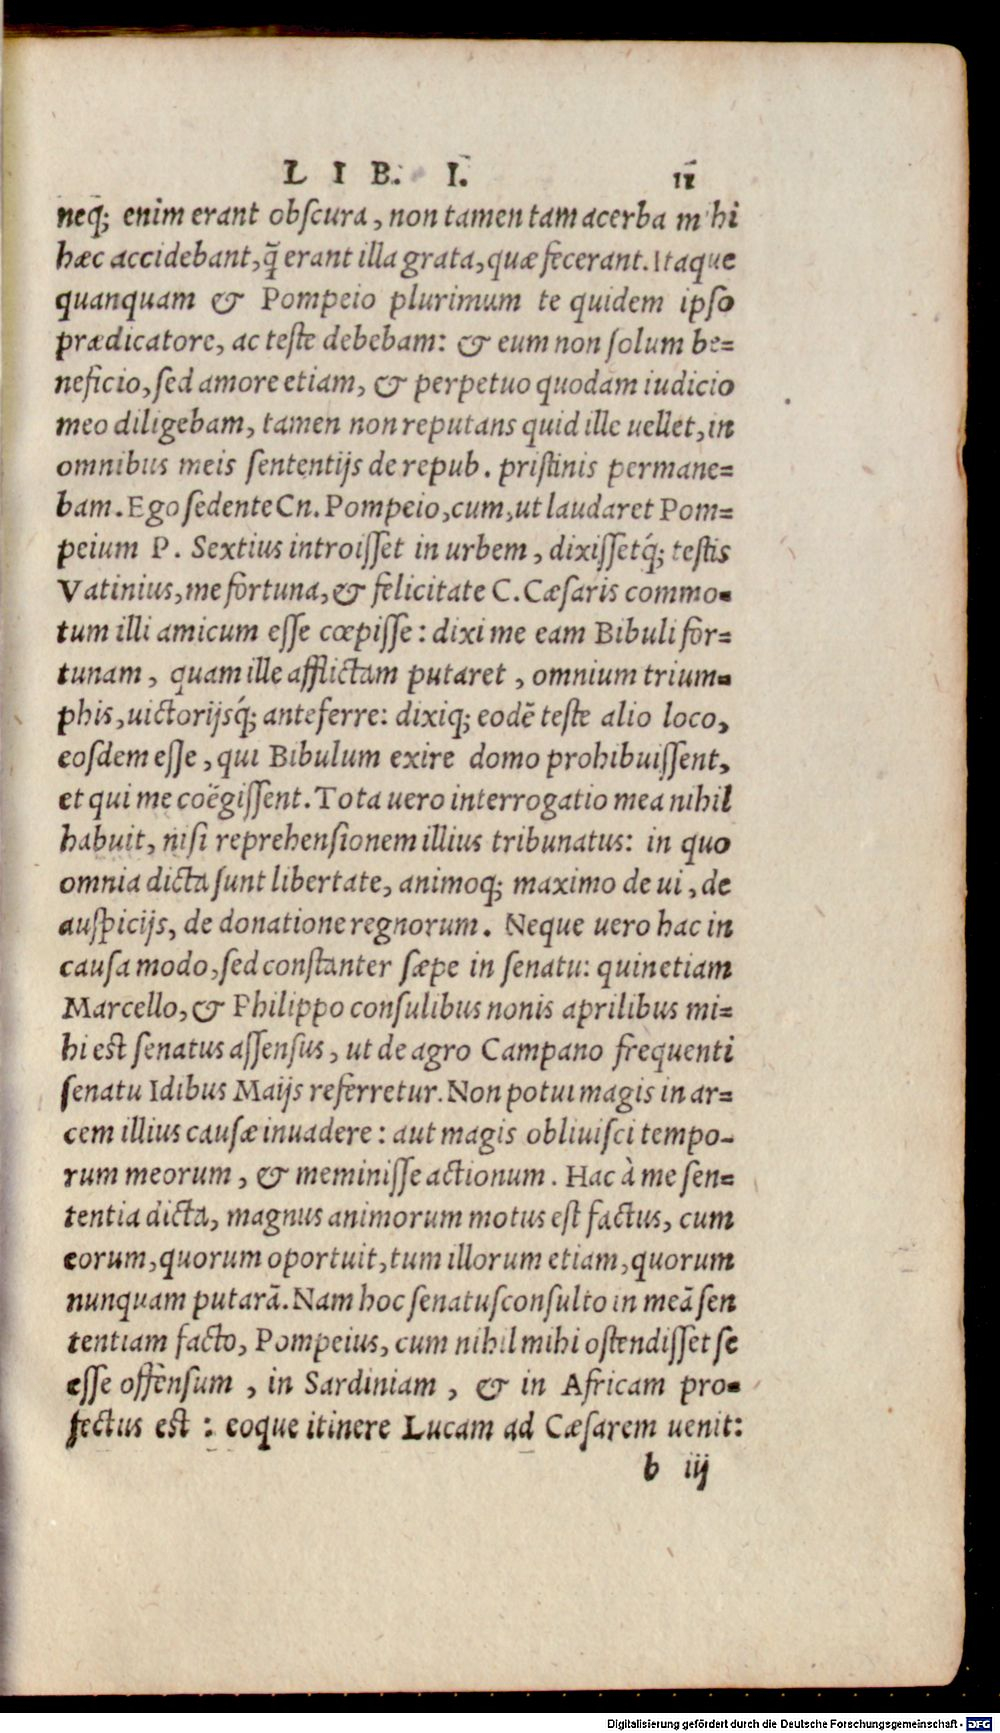 LIB. I. 11
neq; enim erant obſcura, non tamen tam acerba mihi
hæc accidebant, q̃ erant illa grata, quæ fecerant. Itaque
quanquam & Pompeio plurimum te quidem ipſo
prædicatore, ac teſte debebam: & eum non ſolum be=
neficio, ſed amore etiam, & perpetuo quodam iudicio
meo diligebam, tamen non reputans quid ille uellet, in
omnibus meis ſententijs de repub. priſtinis permane=
bam. Ego ſedente Cn. Pompeio, cum, ut laudaret Pom=
peium P. Sextius introiſſet in urbem, dixiſſetq́; teſtis
Vatinius, me fortuna, & felicitate C. Cæſaris commo=
tum illi amicum eſſe cœpiſſe: dixi me eam Bibuli for=
tunam, quam ille afflictam putaret, omnium trium=
phis, uictorijsq́; anteferre: dixiq; eodē teſte alio loco,
eoſdem eſſe, qui Bibulum exire domo prohibuiſſent,
et qui me coëgiſſent. Tota uero interrogatio mea nihil
habuit, niſi reprehenſionem illius tribunatus: in quo
omnia dicta ſunt libertate, animoq; maximo de ui, de
auſpicijs, de donatione regnorum. Neque uero hac in
cauſa modo, ſed conſtanter ſæpe in ſenatu: quinetiam
Marcello, & Philippo conſulibus nonis aprilibus mi=
hi eſt ſenatus aſſenſus, ut de agro Campano frequenti
ſenatu Idibus Maijs referretur. Non potui magis in ar=
cem illius cauſæ inuadere: aut magis obliuiſci tempo-
rum meorum, & meminiſſe actionum. Hac à me ſen=
tentia dicta, magnus animorum motus eſt factus, cum
eorum, quorum oportuit, tum illorum etiam, quorum
nunquam putarā. Nam hoc ſenatuſconſulto in meā ſen
tentiam facto, Pompeius, cum nihil mihi oſtendiſſet ſe
eſſe offenſum, in Sardiniam, & in Africam pro=
fectus eſt: eoque itinere Lucam ad Cæſarem uenit:
b iij
Digitalisierung gefördert durch die Deutsche Forschungsgemeinschaft - DFG